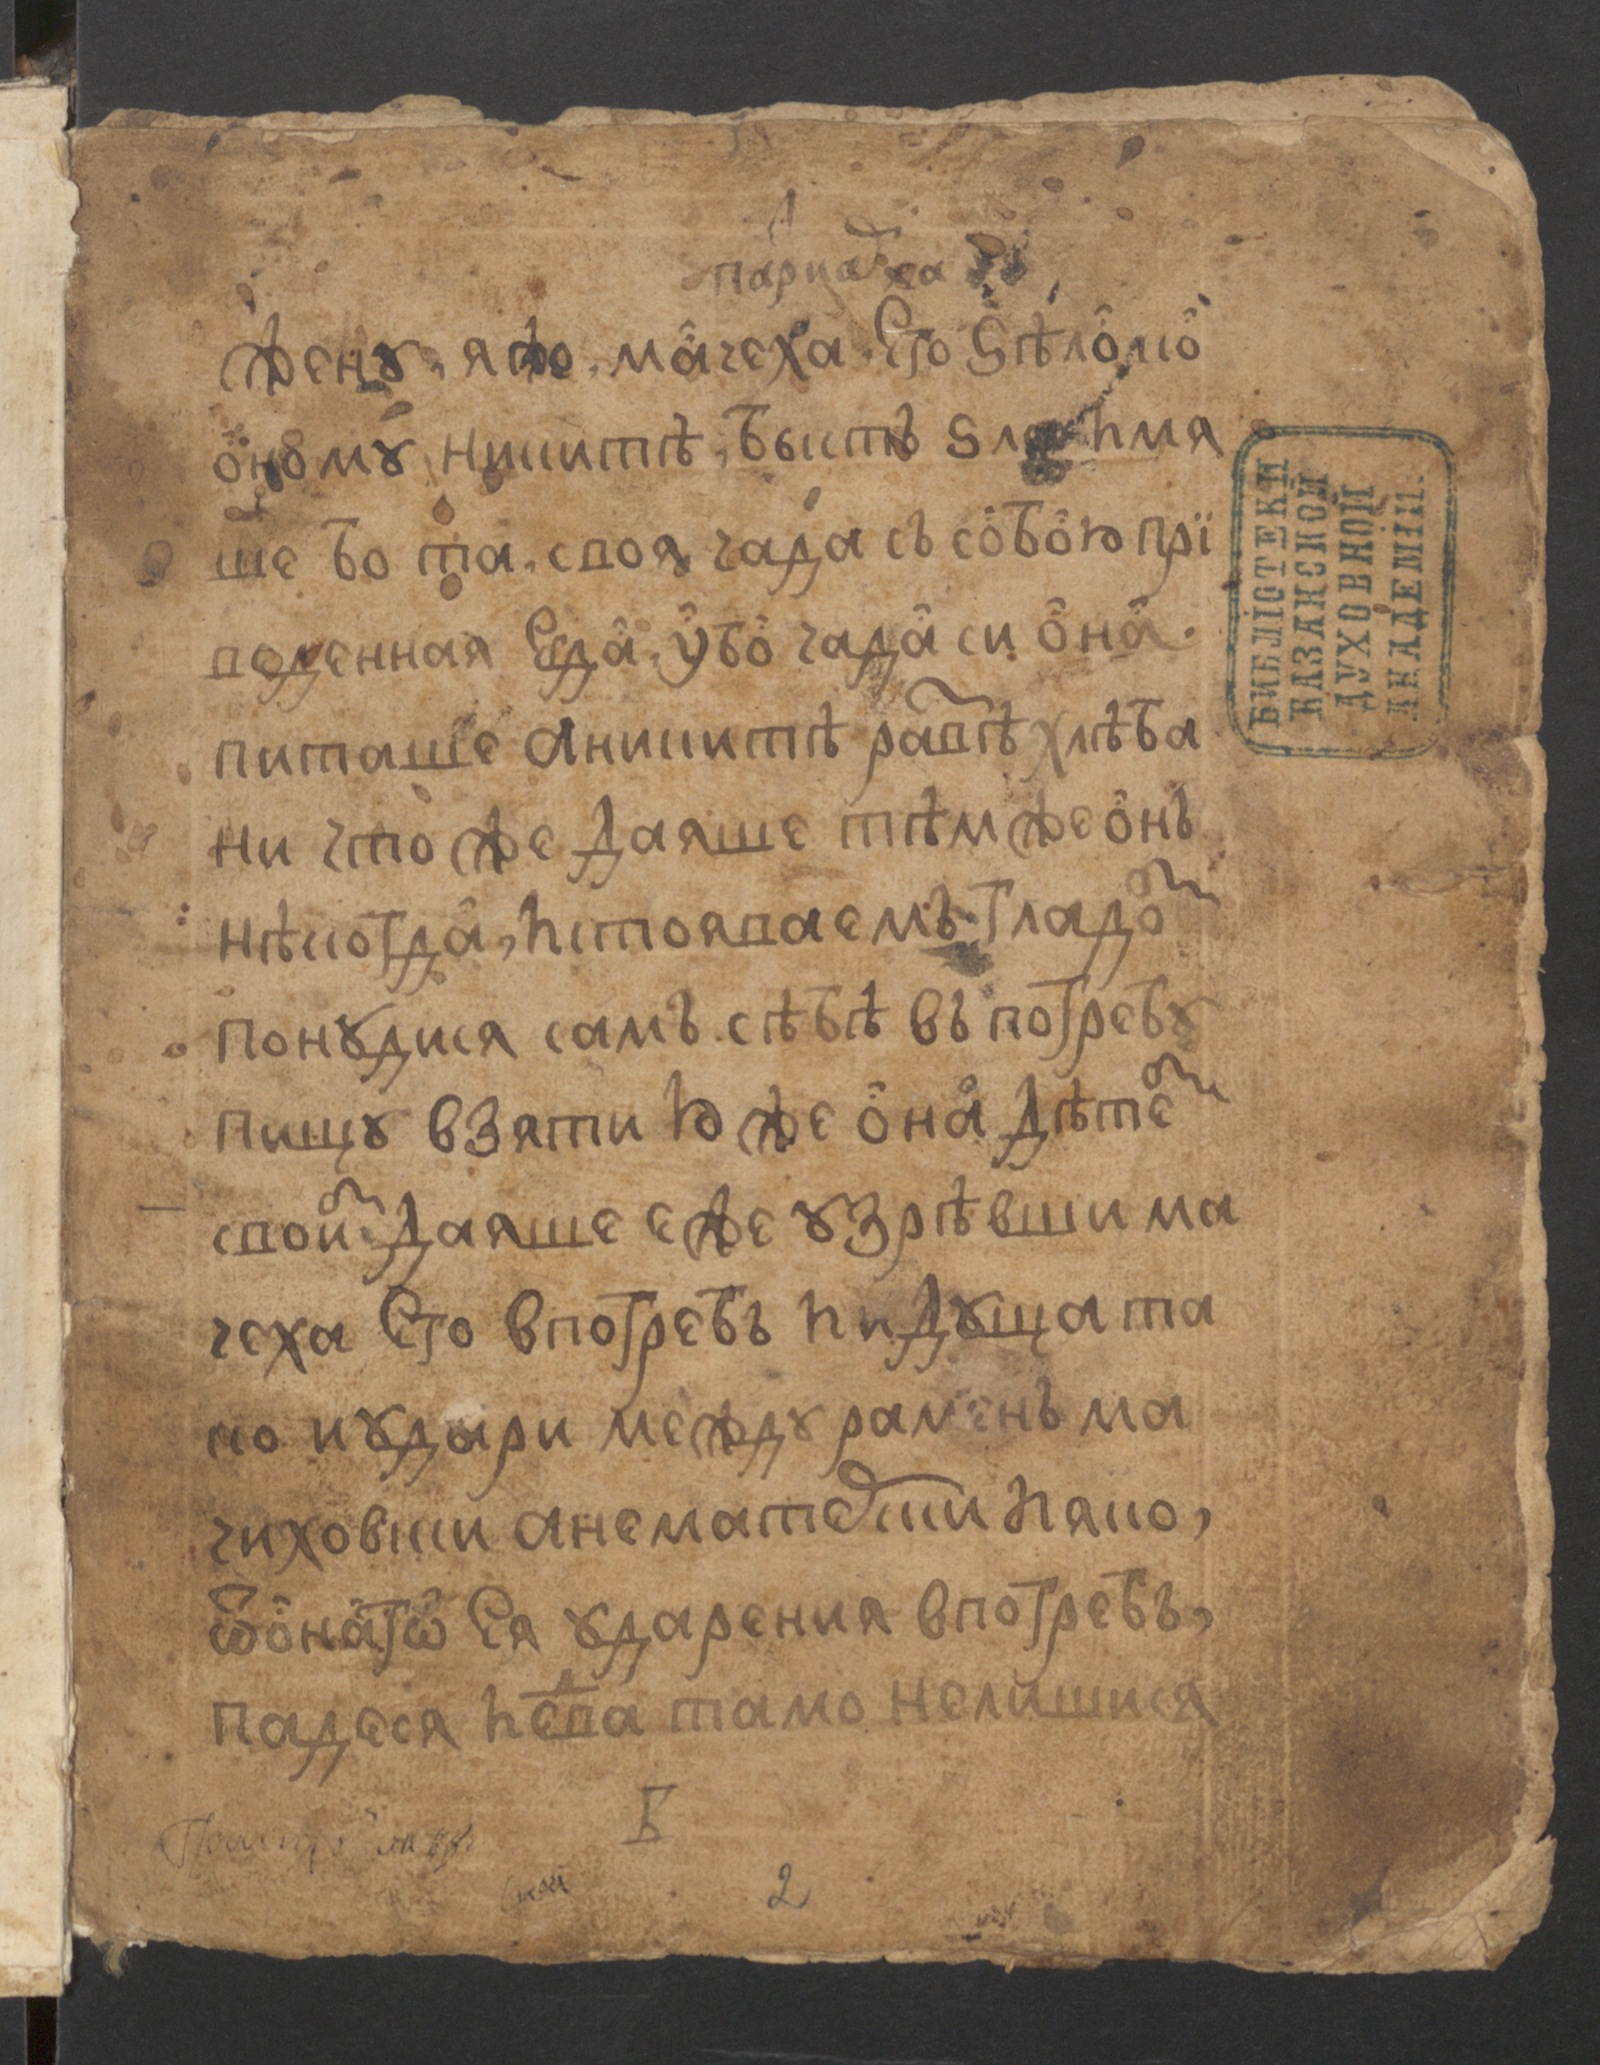 патриарха
жену, яже, мачеха, его ѕѣлѡ ко
ономꙋ никитѣ, бысть ѕла имя
ше бо та, своя чада съ собою прї
веденная Егда, ѹбо чада си она
питаше а никитѣ равнѣ хлѣба
ни что же даяше тѣм же онъ
нѣкогда, истояваемъ гладом
понꙋдися самъ сѣбѣ въ погребꙋ
пищꙋ взяти Юже она дѣтем
своим даяше еже ꙋзрѣвши ма
чеха Его в погребъ идꙋща та
ко и ꙋдари междꙋ раменъ ма
чиховши а не матерши ияко,
ѿ онагѡ Ея ꙋдарения в погребъ,
падеся и едва тамо не лишися
Б
2
БИБЛІОТЕКИ
КАЗАНСКОЙ
ДУХОВНОЙ
АКАДЕМІИ.